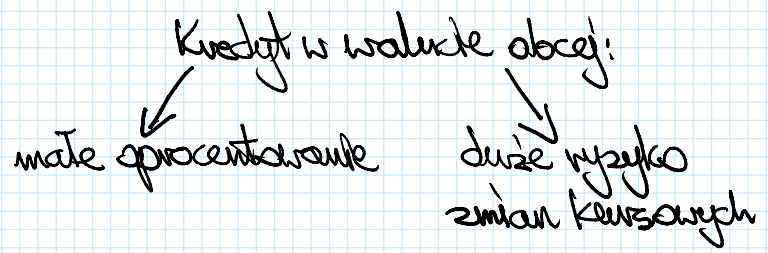 Kredyt w walucie obcej:
małe oprocentowanie
duże ryzyko
zmian kursowych